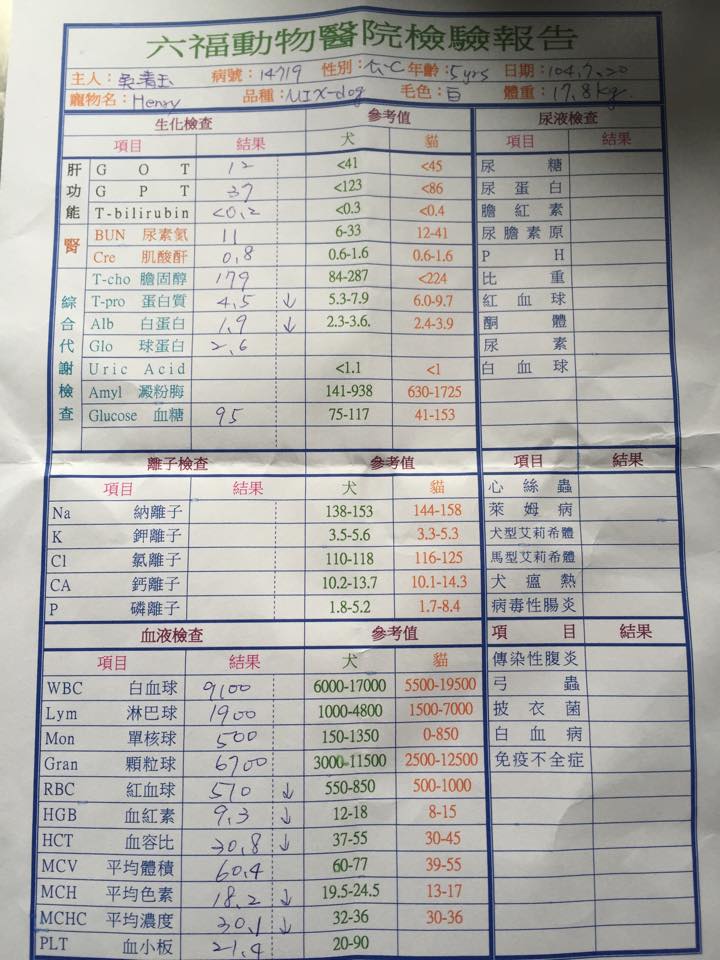 六福動物醫院檢驗報告
主人: 病號:14719 性別: 年齡:5yrs 日期:104.7.20
寵物名:Henry 品種:MIX-dog 毛色:白 體重:17.8kg
生化檢查 參考值 尿液檢查
項目 結果 犬 貓 項目 結果
肝功能
GOT 12 <41 <45 尿糖
GPT 37 <123 <86 尿蛋白
T-bilirubin <0.2 <0.3 <0.4 膽紅素
腎
BUN 尿素氮 11 6-33 12-41 尿膽素原
Cre 肌酸酐 0.8 0.6-1.6 0.6-1.6 PH
綜合代謝檢查
T-cho 膽固醇 179 84-287 <224 比重
T-pro 蛋白質 4.5 ↓ 5.3-7.9 6.0-9.7 紅血球
Alb 白蛋白 1.9 ↓ 2.3-3.6. 2.4-3.9 酮體
Glo 球蛋白 2.6 尿素
Uric Acid <1.1 <1 白血球
Amyl 澱粉脢 141-938 630-1725
Glucose 血糖 95 75-117 41-153
離子檢查 參考值 項目 結果
項目 結果 犬 貓 心絲蟲
Na 納離子 138-153 144-158 萊姆病
K 鉀離子 3.5-5.6 3.3-5.3 犬型艾莉希體
Cl 氯離子 110-118 116-125 馬型艾莉希體
CA 鈣離子 10.2-13.7 10.1-14.3 犬瘟熱
P 磷離子 1.8-5.2 1.7-8.4 病毒性腸炎
血液檢查 參考值 項目 結果
項目 結果 犬 貓 傳染性腹炎
WBC 白血球 9100 6000-17000 5500-19500 弓蟲
Lym 淋巴球 1900 1000-4800 1500-7000 披衣菌
Mon 單核球 500 150-1350 0-850 白血病
Gran 顆粒球 6700 3000-11500 2500-12500 免疫不全症
RBC 紅血球 510 ↓ 550-850 500-1000
HGB 血紅素 9.3 ↓ 12-18 8-15
HCT 血容比 30.8 ↓ 37-55 30-45
MCV 平均體積 60.4 60-77 39-55
MCH 平均色素 18.2 ↓ 19.5-24.5 13-17
MCHC 平均濃度 30.1 ↓ 32-36 30-36
PLT 血小板 21.4 20-90